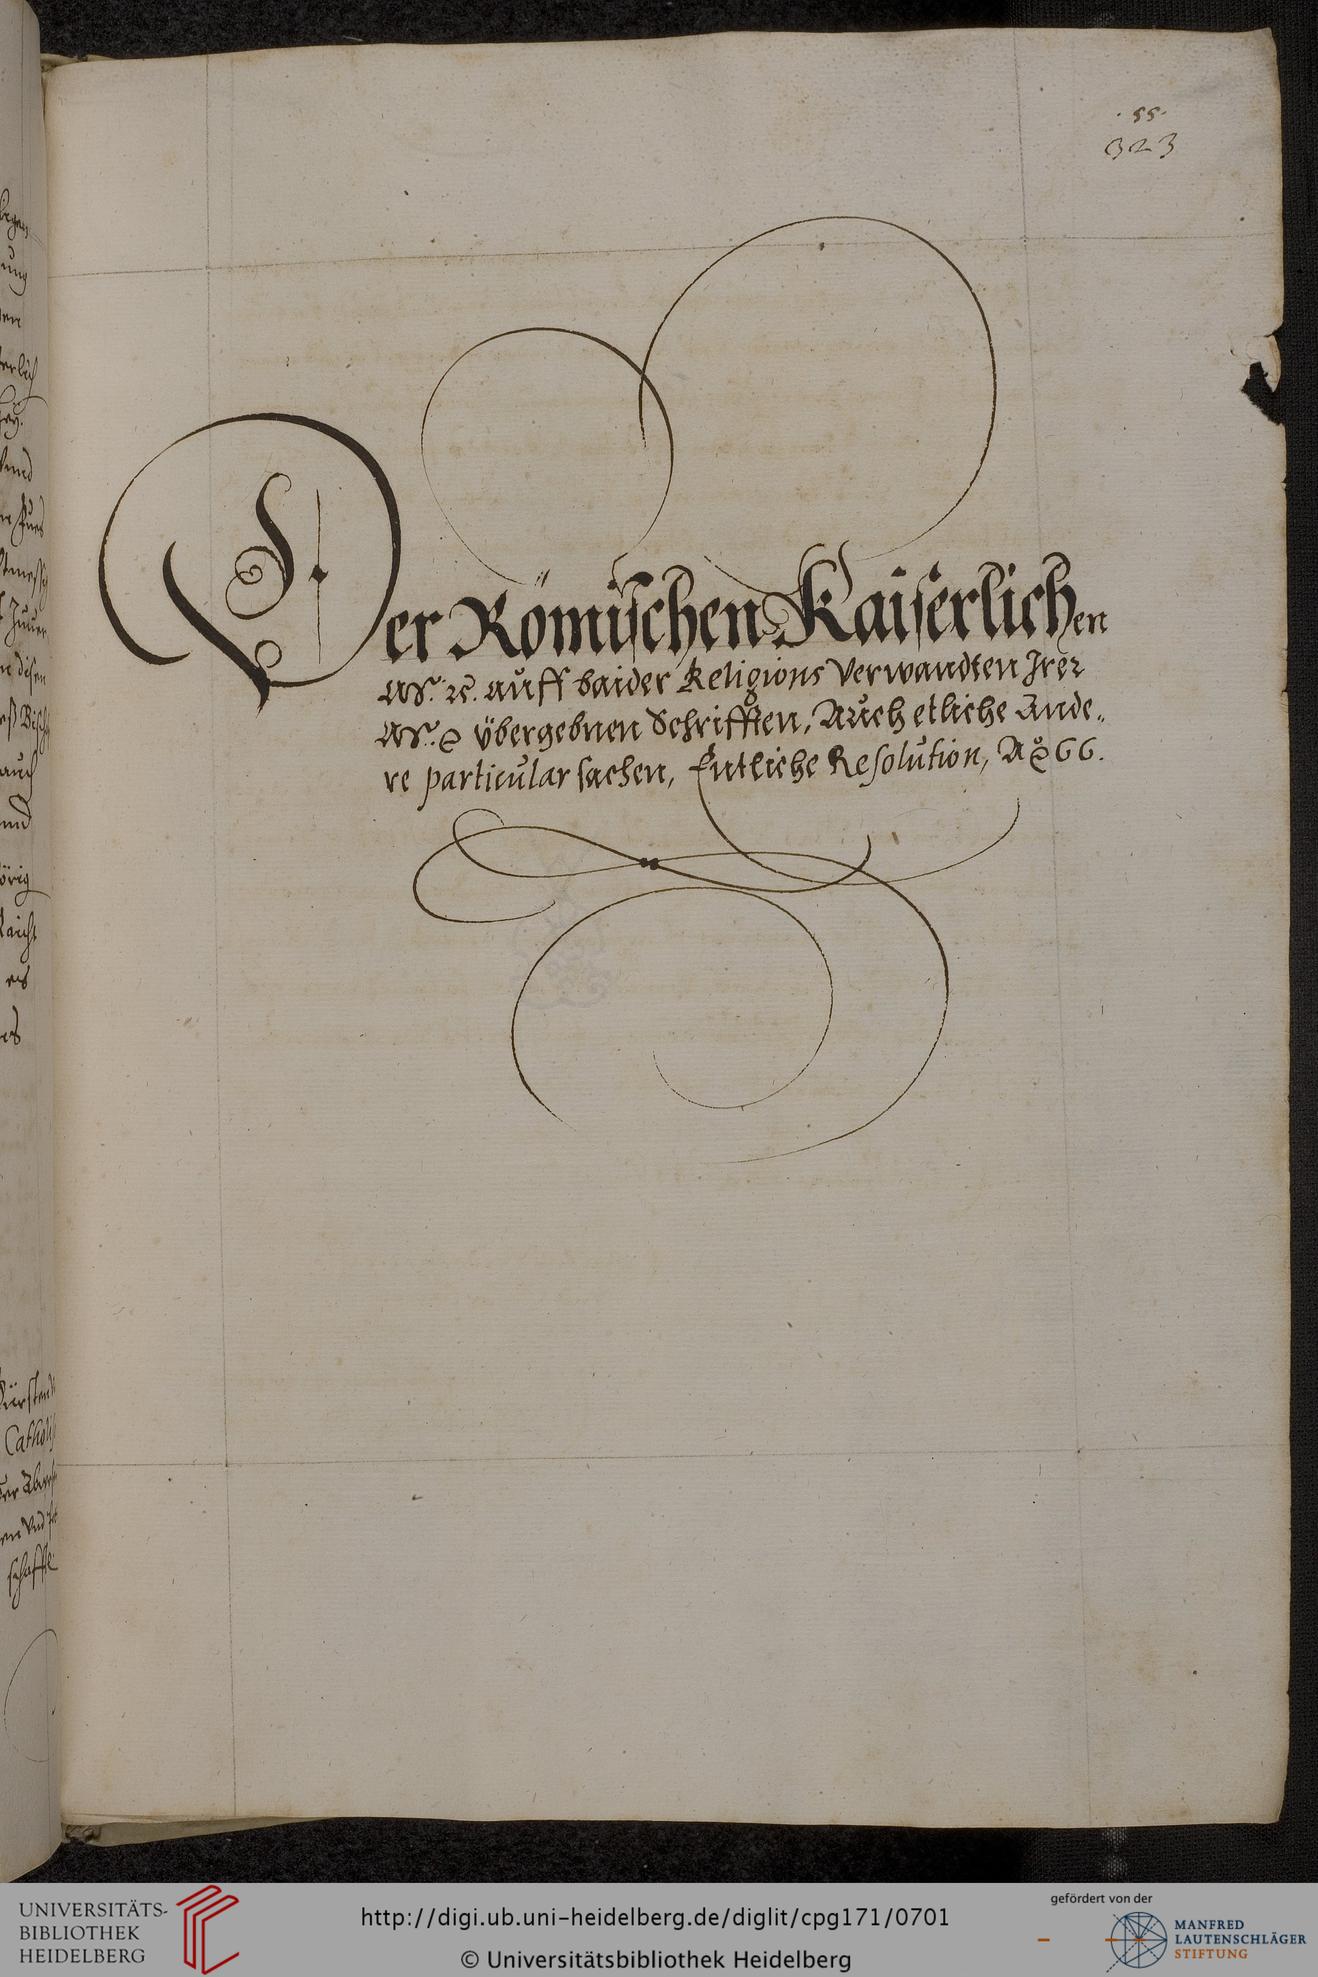 · 55 ·
323
Der Römischen Kaiserlichen
auff baider Religions Verwandten Irer
übergebnen Schrifften, Auch etliche Ande„
re particular sachen, Entliche Resolution, Aō 66.
UNIVERSITÄTS-
BIBLIOTHEK
HEIDELBERG
http://digi.ub.uni-heidelberg.de/diglit/cpg171/0701
© Universitätsbibliothek Heidelberg
gefördert von der
MANFRED
LAUTENSCHLÄGER
STIFTUNG